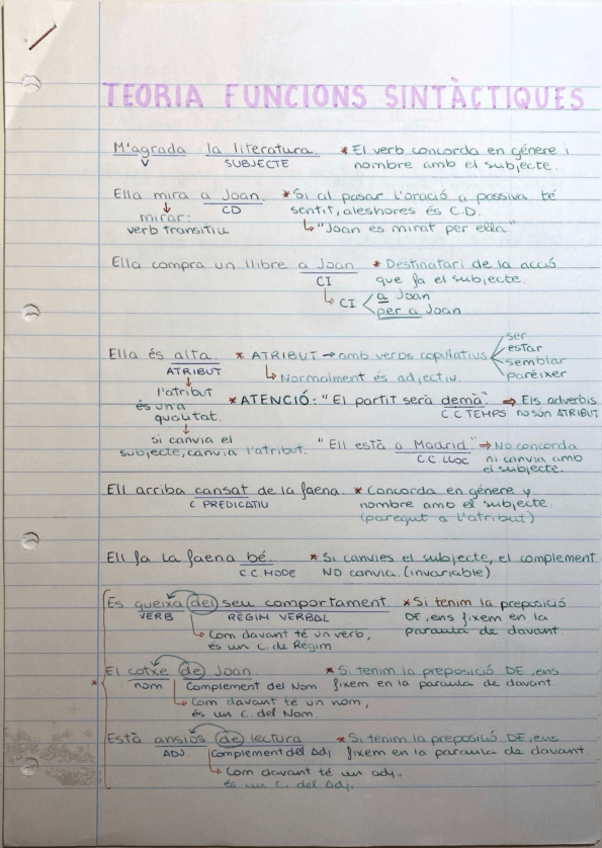 TEORIA FUNCIONS SINTÀCTIQUES
M'agrada la literatura. * El verb concorda en génere i
V SUBJECTE nombre amb el subjecte.
Ella mira a Joan. * Si al pasar l'oració a passiva té
CD sentit, aleshores és C.D.
mirar: ↳ "Joan es mirat per ella"
verb transitiu
Ella compra un llibre a Joan * Destinatari de la acció
CI que fa el subjecte.
↳ CI < a Joan
per a Joan
ser
Ella és alta. * ATRIBUT → amb verbs copulatius estar
ATRIBUT semblar
↳ Normalment és adjectiu. paréixer
l'atribut * ATENCIÓ: "El partit serà demà". ⇒ Els adverbis
és una C C TEMPS no són ATRIBUT
qualitat.
si canvia el "Ell està a Madrid." ⇒ No concorda
subjecte, canvia l'atribut. C.C. LLOC ni canvia amb
el subjecte.
Ell arriba cansat de la faena. * Concorda en génere y
C PREDICATIU nombre amb el subjecte.
(paregut a l'atribut)
Ell fa la faena bé. * Si canvies el subjecte, el complement
C.C. MODE NO canvia. (invariable)
Es queixa del seu comportament. * Si tenim la preposició
VERB RÈGIM VERBAL DE, ens fixem en la
↳ Com davant té un verb, paraula de davant.
és un C. de Règim
El cotxe de Joan. * Si tenim la preposició DE, ens
* nom Complement del Nom fixem en la paraula de davant.
↳ Com davant té un nom,
és un C. del Nom.
Està ansiós de lectura * Si tenim la preposició DE, ens
ADJ. Complement del Adj fixem en la paraula de davant
↳ Com davant té un adj.,
és un C. del Adj.